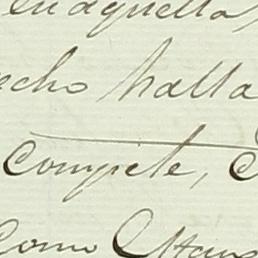 en aquella
echo halla
compete, 
Como